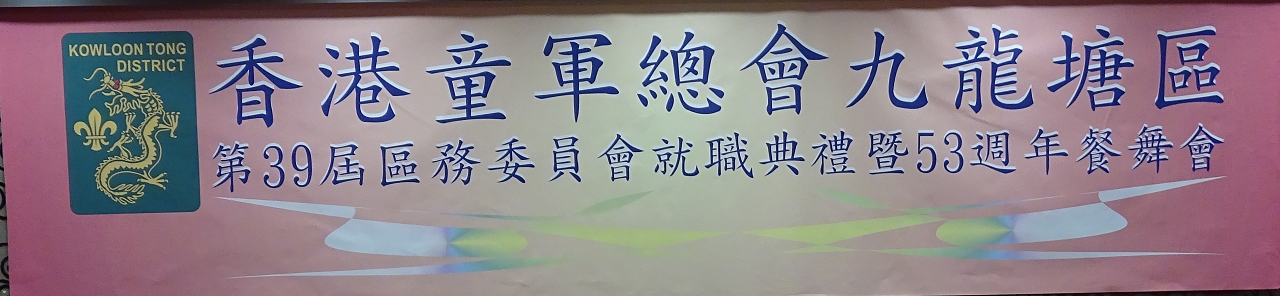 KOWLOON TONG
DISTRICT
香港童軍總會九龍塘區
第39屆區務委員會就職典禮暨53週年餐舞會